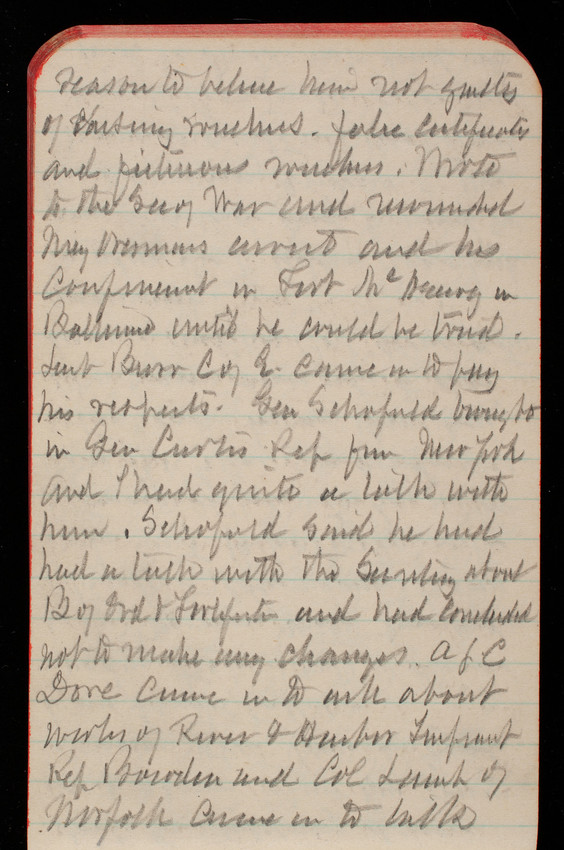 reason to believe him not guilty
of Raising vouchers. false certificates
and fictitious vouchers. Wrote
to the Sec of War and recommended
arrest and his
Confinement in Fort McHenry in
Baltimore until he could be tried.
Lieut Burr Coy E. came in to pay
his respects. Gen Schofield brought
in Gen Curtis Rep from New York
and I had quite a talk with
him. Schofield said he had
had a talk with the Secretary about
B of Ord & Fortifictn and had concluded
not to make any changes. A of C
Dove came in to ask about
works of River & Harbor Improvmt
Rep Bowden and Col Lamb of
Norfolk came in to talk